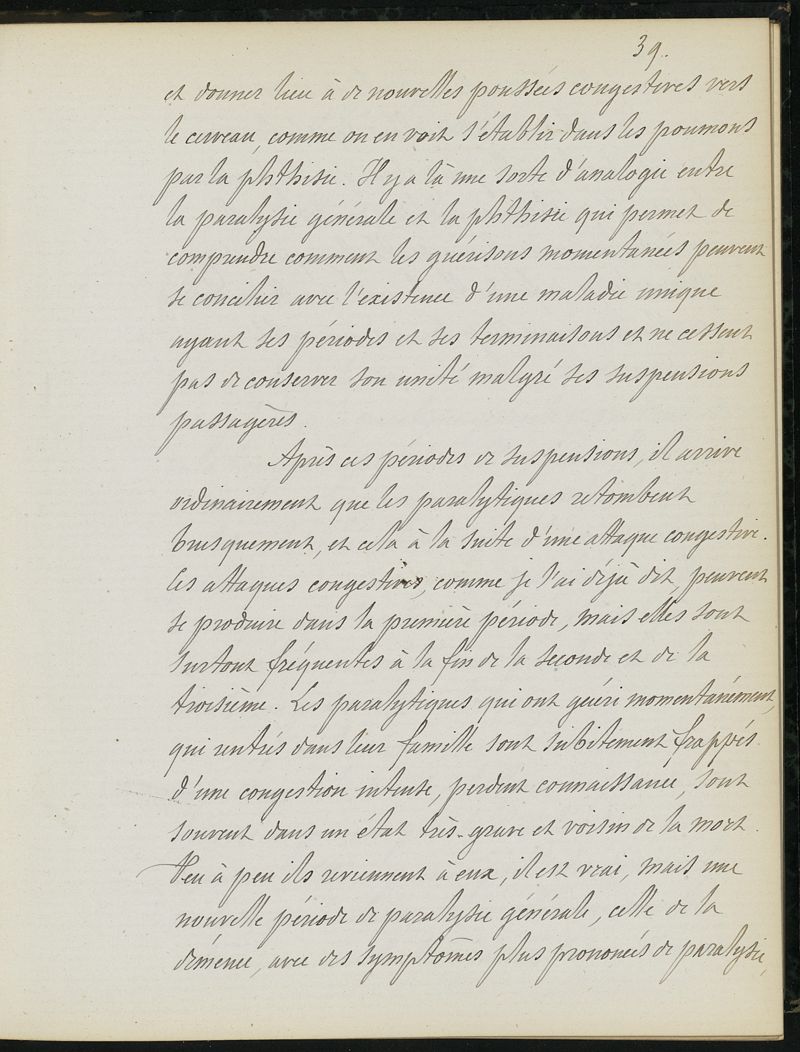 39.
et donner lieu à de nouvelles poussées congestives vers
le cerveau, comme on en voit s'établir dans les poumons
par la phthisie. Il y a là une sorte d'analogie entre
la paralysie générale et la phthisie qui permet de
comprendre comment les guérisons momentanées peuvent
se concilier avec l'existence d'une maladie unique
ayant ses périodes et ses terminaisons et ne cessent
pas de conserver son unité malgré ses suspensions
passagères.
Après ces périodes de suspensions, il arrive
ordinairement que les paralytiques retombent
brusquement, et cela à la suite d'une attaque congestive.
Les attaques congestives, comme je l'ai déjà dit, peuvent
se produire dans la première période, mais elles sont
surtout fréquentes à la fin de la seconde et de la
troisième. Les paralytiques qui ont guéri momentanément,
qui rentrés dans leur famille sont subitement frappés
d'une congestion intense, perdent connaissance, sont
souvent dans un état très-grave et voisin de la mort.
Peu à peu ils reviennent à eux, il est vrai, mais une
nouvelle période de paralysie générale, celle de la
démence, avec des symptômes plus prononcés de paralysie,